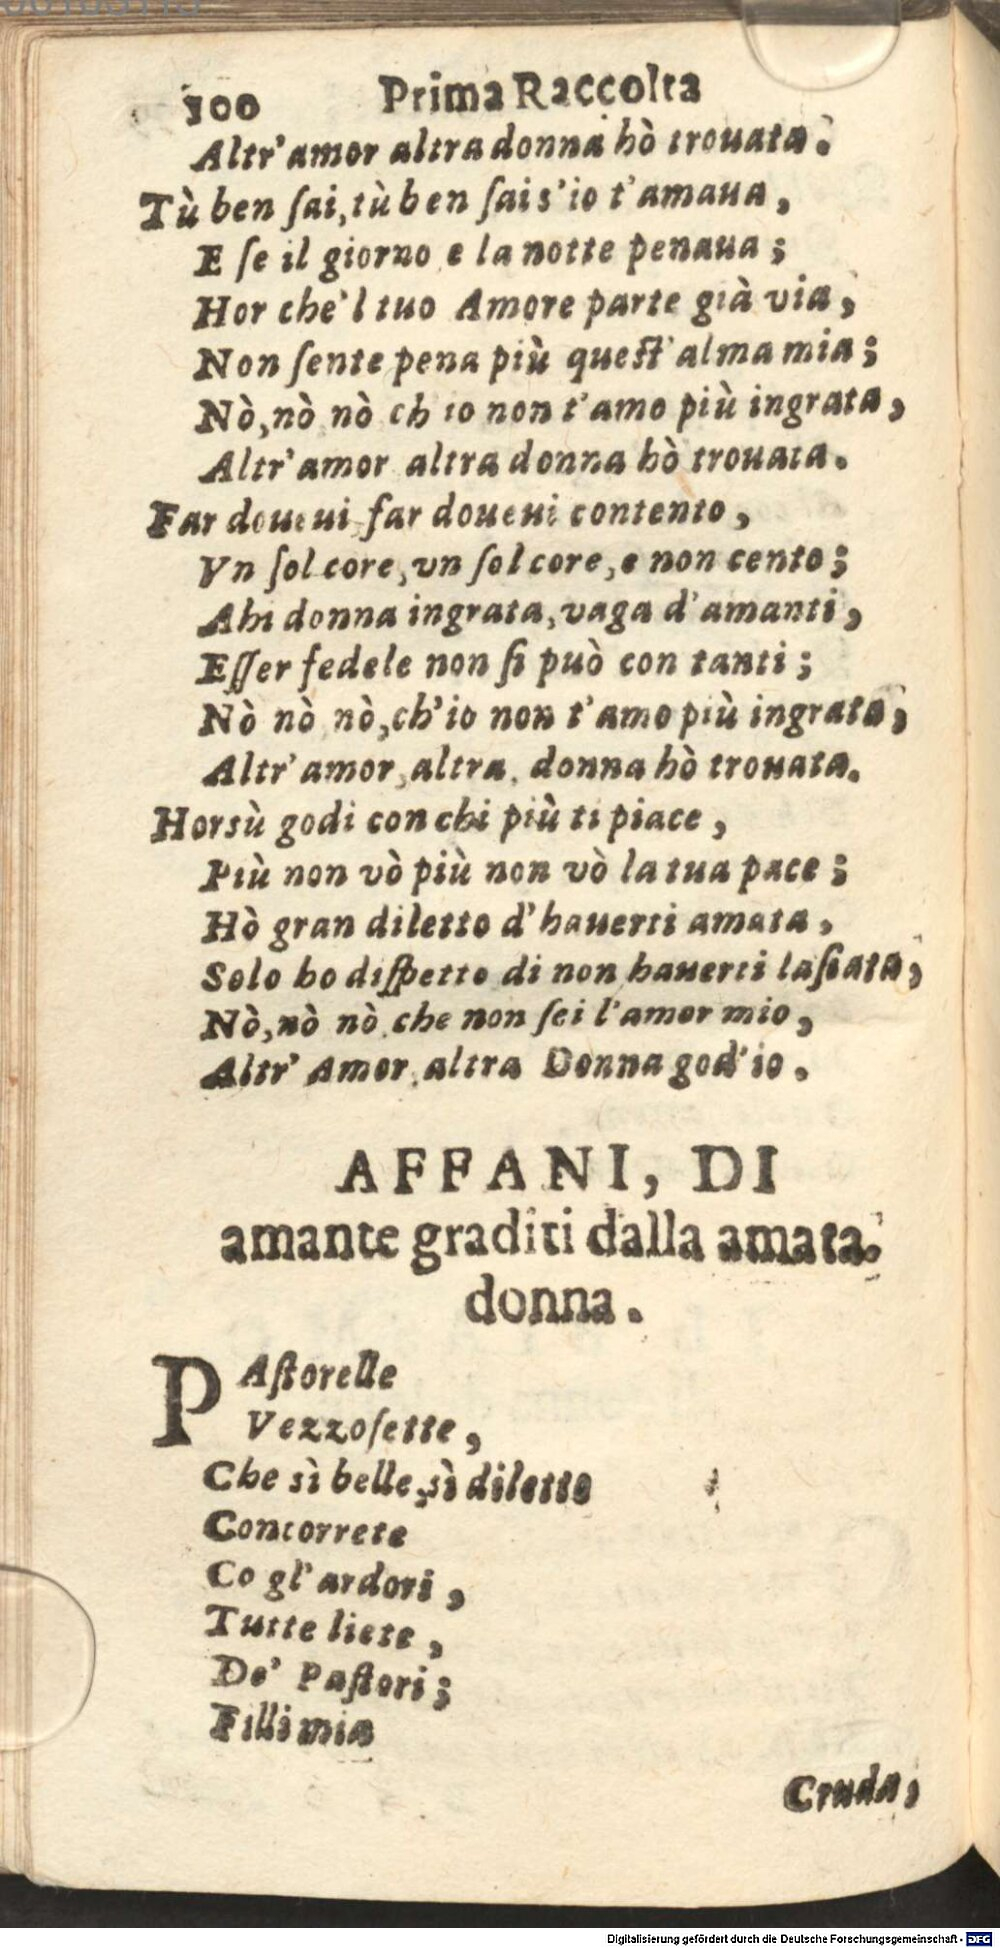 100 Prima Raccolta
Altr'amor altra donna hò trouata.
Tù ben ſai, tù ben ſai s'io t'amaua,
E ſe il giorno e la notte penaua;
Hor che'l tuo Amore parte già via,
Non ſente pena più queſt'alma mia;
Nò, nò nò ch io non t'amo più ingrata,
Altr'amor altra donna hò trouata.
Far doueui far doueui contento,
Vn ſol core, vn ſol core, e non cento;
Ahi donna ingrata, vaga d'amanti,
Eſſer fedele non ſi può con tanti;
Nò nò nò, ch'io non t'amo più ingrata,
Altr'amor, altra donna hò trouata.
Horsù godi con chi più ti piace,
Più non vò più non vò la tua pace;
Hò gran diletto d'hauerti amata,
Solo ho diſpetto di non hauerti laſciata,
Nò, nò nò che non ſei l'amor mio,
Altr' Amor altra Donna god'io.
AFFANI, DI
amante graditi dalla amata
donna.
PAſtorelle
Vezzoſette,
Che sì belle, sì dilette
Concorrete
Co gl'ardori,
Tutte liete,
De' Paſtori;
Filli mia
Cruda,
Digitalisierung gefördert durch die Deutsche Forschungsgemeinschaft - DFG